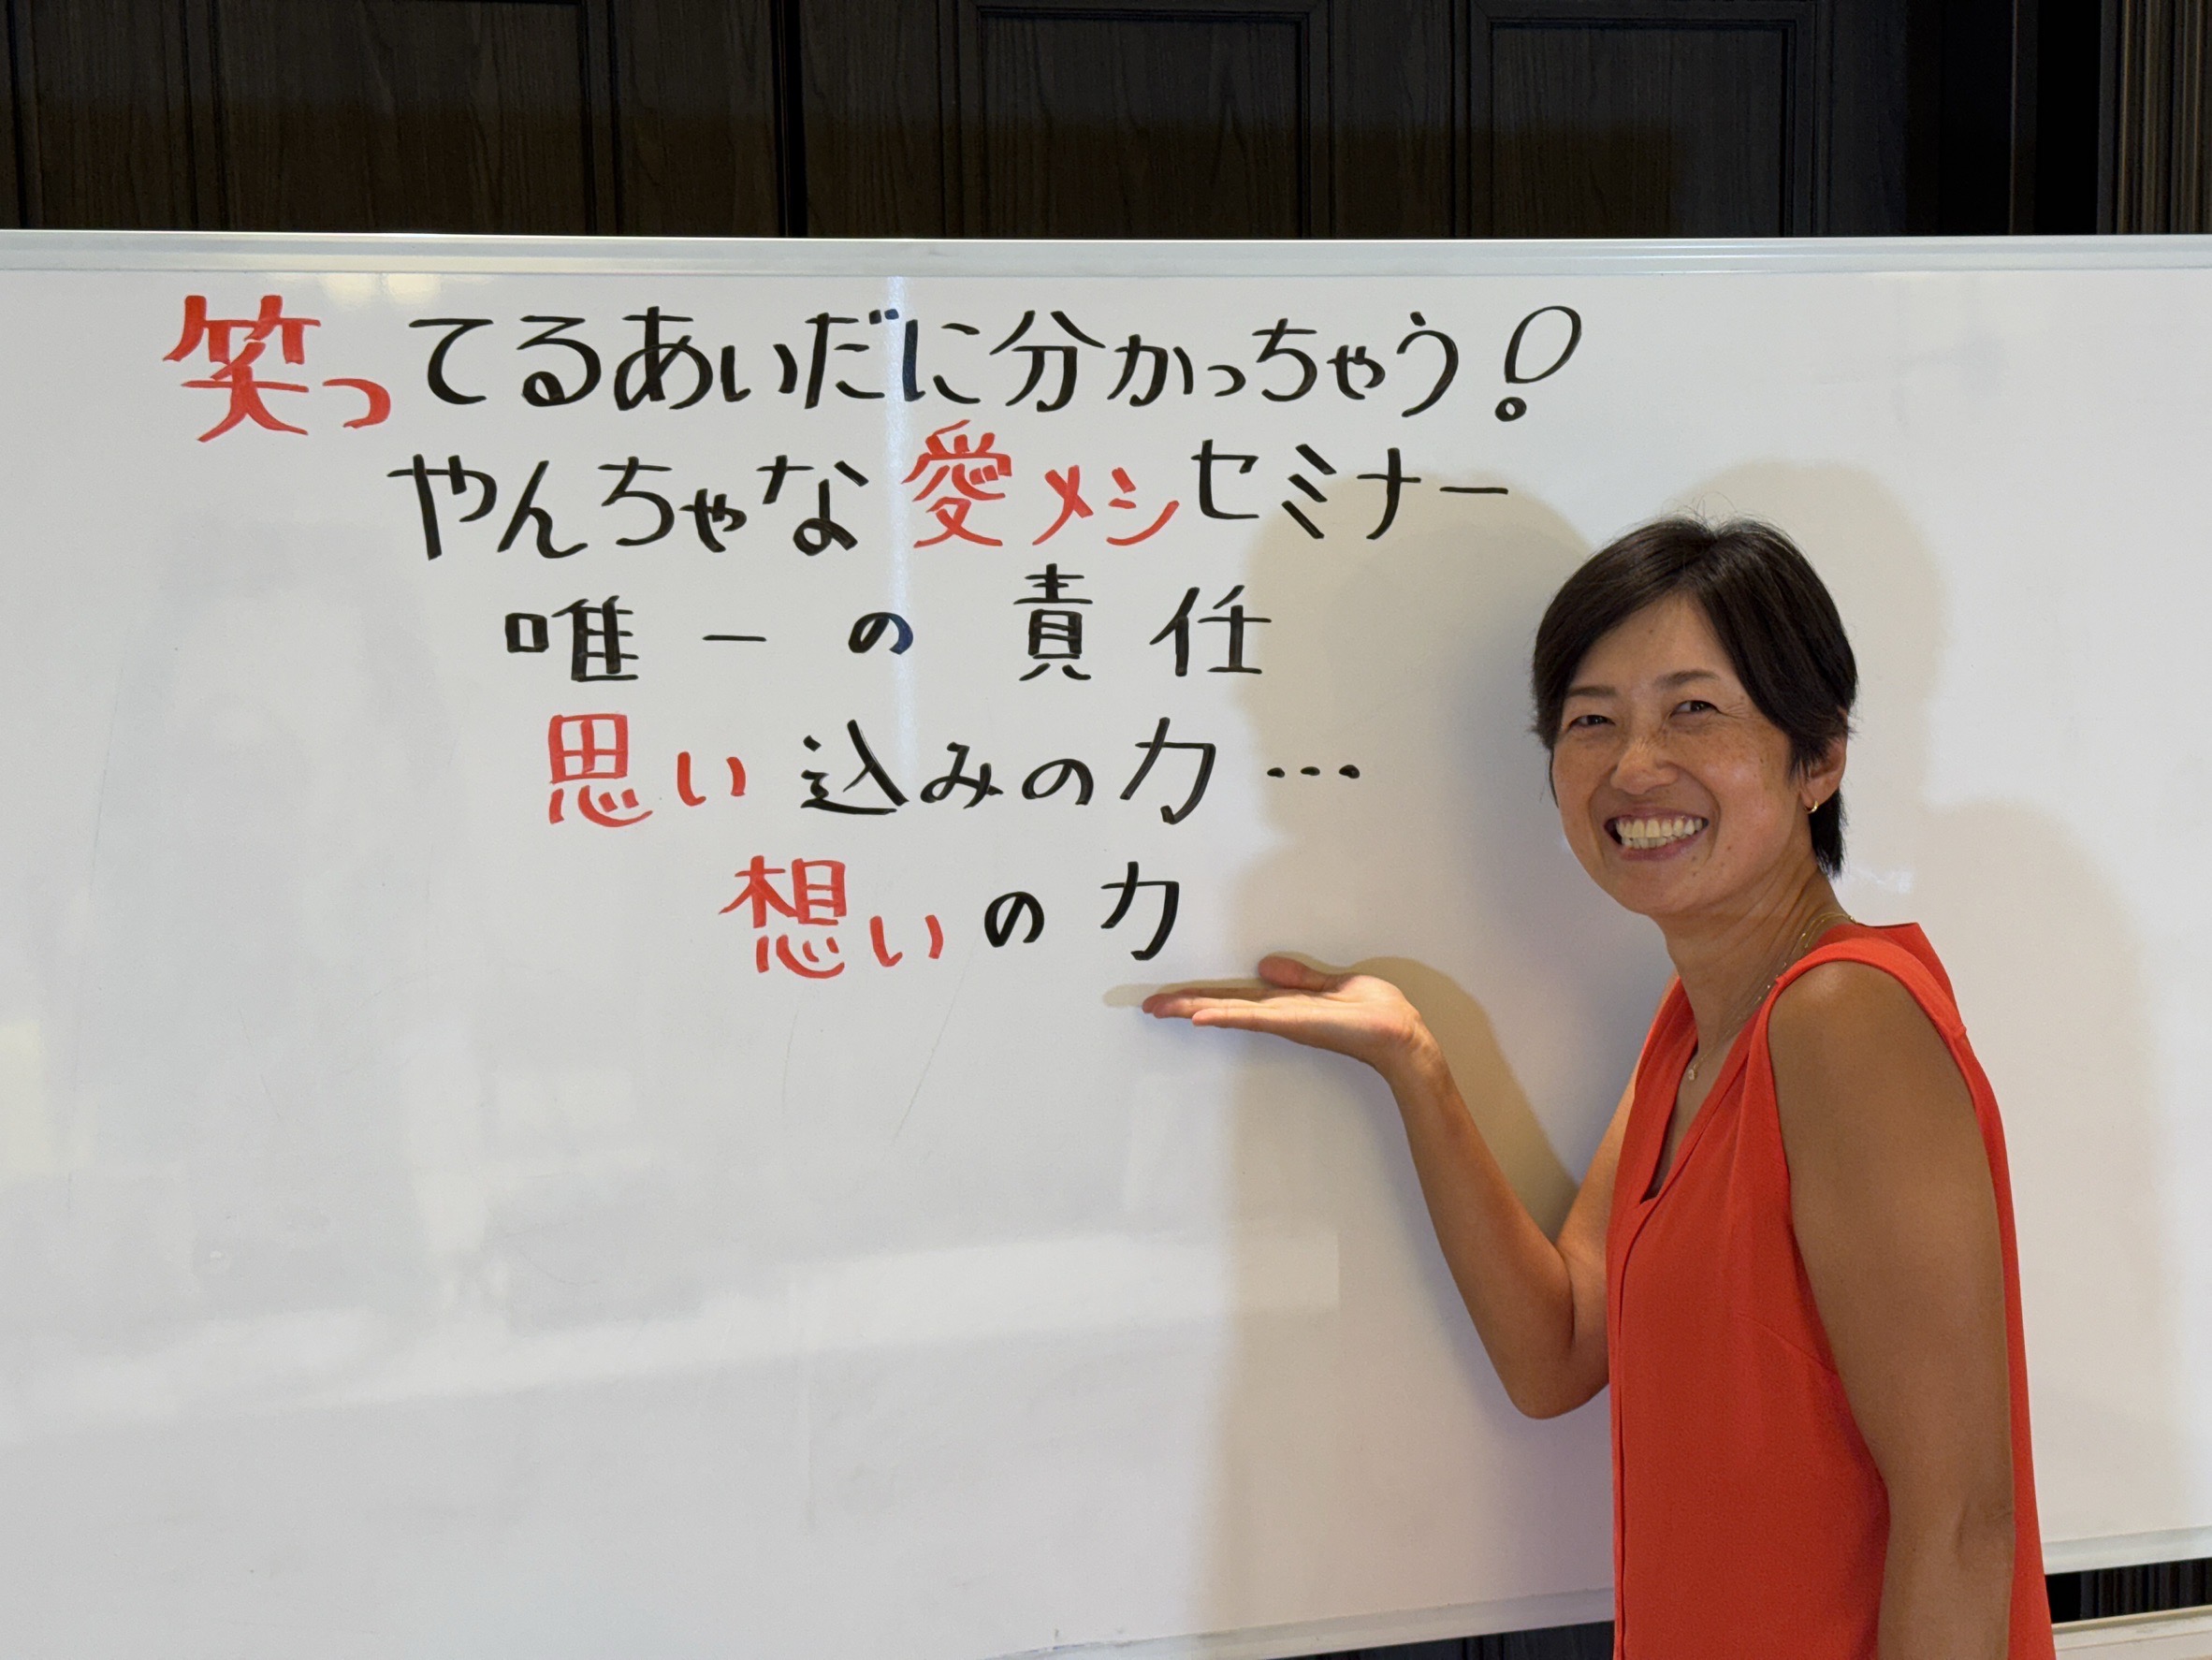 笑ってるあいだに分かっちゃう!
やんちゃな愛メシセミナー
唯一の責任
思い込みの力…
想いの力